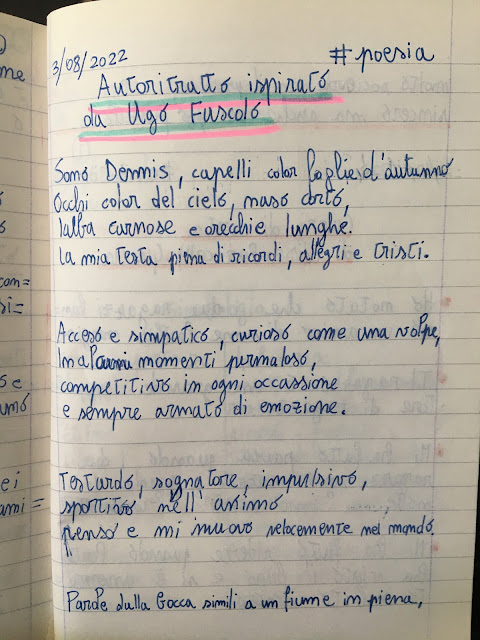 3/08/2022
#poesia
Autoritratto ispirato
da Ugo Fuscolo
Sono Dennis, capelli color foglie d'autunno
Occhi color del cielo, naso corto,
labbra carnose e orecchie lunghe.
La mia testa piena di ricordi, allegri e tristi.
Acceso e simpatico, curioso come una volpe,
In alcuni momenti permaloso,
competitivo in ogni occassione
e sempre armato di emozione.
Testardo, sognatore, impulsivo,
sportivo nell'animo
penso e mi muovo velocemente nel mondo.
Parole dalla bocca simili a un fiume in piena,